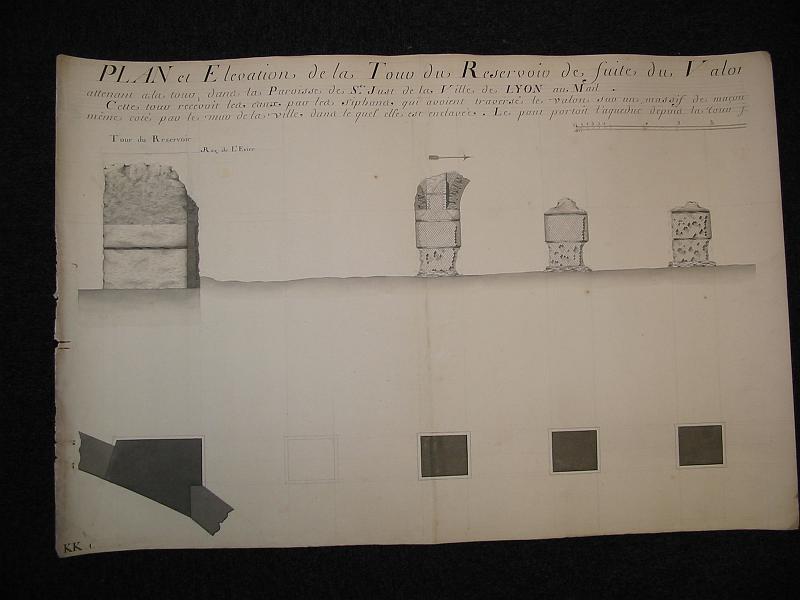 PLAN et Elevation de la Tour du Reservoir de suite du Valon
attenant a la tour, dans la Paroisse de St. Just de la Ville de LYON au Mail.
Cette tour recevoit les eaux par les siphons, qui avoient traversé le valon sur un massif de maçon
même coté par le mur de la ville, dans le quel elle est enclavée. Le pont portoit l'aqueduc depuis la tour
Tour du Reservoir
Rez de L'Evier
KK